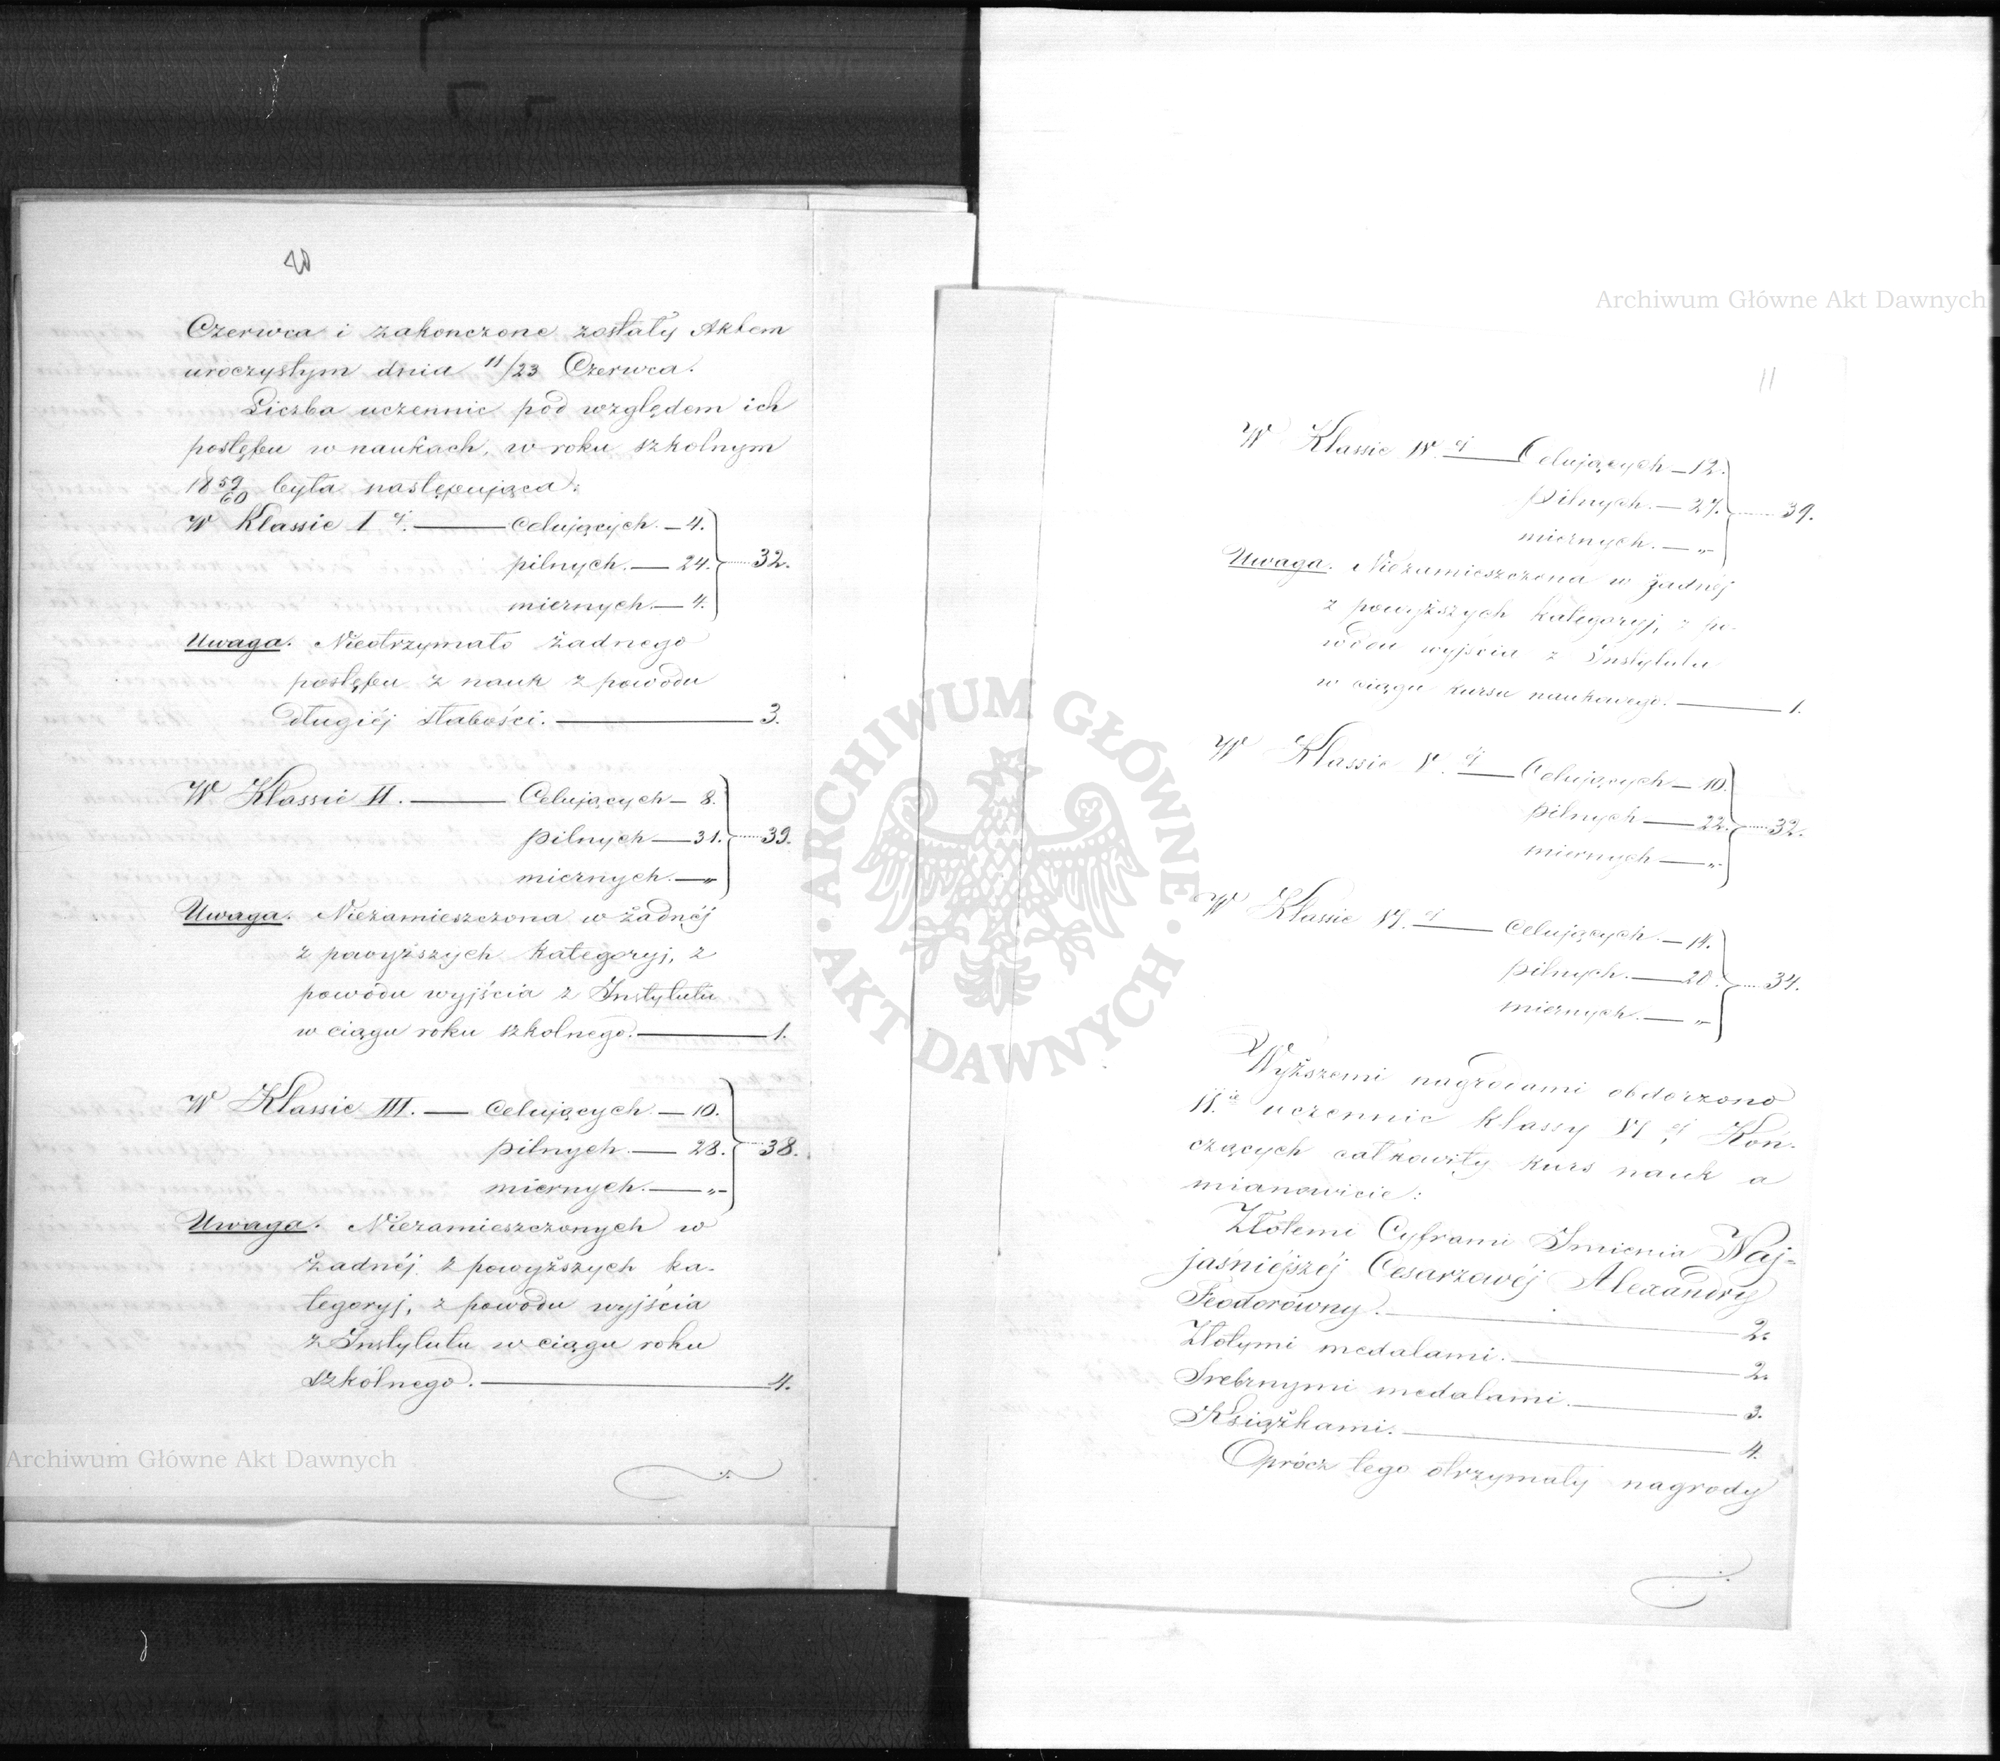 Czerwca i zakończone zostały Aktem
uroczystym dnia 11/23 Czerwca.
Liczba uczennic pod względem ich
postępu w naukach, w roku szkolnym
18 59/60 była następująca:
W Klassie I éj. — Celujących. — 4.
pilnych. — 24. 32.
miernych. — 4.
Uwaga. Nieotrzymało żadnego
postępu z nauk z powodu
długiéj słabości. — 3.
W Klassie II. — Celujących — 8.
pilnych — 31. 39.
miernych. — „
Uwaga. Niezamieszczona w żadnéj
z powyższych kategoryj, z
powodu wyjścia z Instytutu
w ciągu roku szkolnego. — 1.
W Klassie III. — Celujących. — 10.
pilnych. — 28. 38.
miernych. — „
Uwaga. Niezamieszczonych w
żadnéj z powyższych ka-
tegoryj, z powodu wyjścia
z Instytutu w ciągu roku
szkólnego. — 4.
11
W Klassie IV. éj — Celujących — 12.
pilnych. — 27. 39.
miernych. — „
Uwaga. Niezamieszczona w żadnéj
z powyższych kategoryj, z po-
wodu wyjścia z Instytutu
w ciągu kursu naukowego. — 1.
W Klassie V. éj — Celujących — 10.
pilnych — 22. 32.
miernych — „
W Klassie VI. éj — Celujących. — 14.
pilnych. — 20. 34.
miernych. — „
Wyższemi nagrodami obdarzono
11.ie uczennic klassy VI éj Koń-
czących całkowity kurs nauk a
mianowicie:
Złotemi Cyframi Imienia Naj-
jaśniéjszéj Cesarzowéj Alexandry
Feodorówny. — 2.
Złotymi medalami. — 2.
Srebrnymi medalami. — 3.
Książkami. — 4.
Oprócz tego otrzymały nagrody
Archiwum Główne Akt Dawnych
Archiwum Główne Akt Dawnych
ARCHIWUM GŁÓWNE · AKT DAWNYCH ·